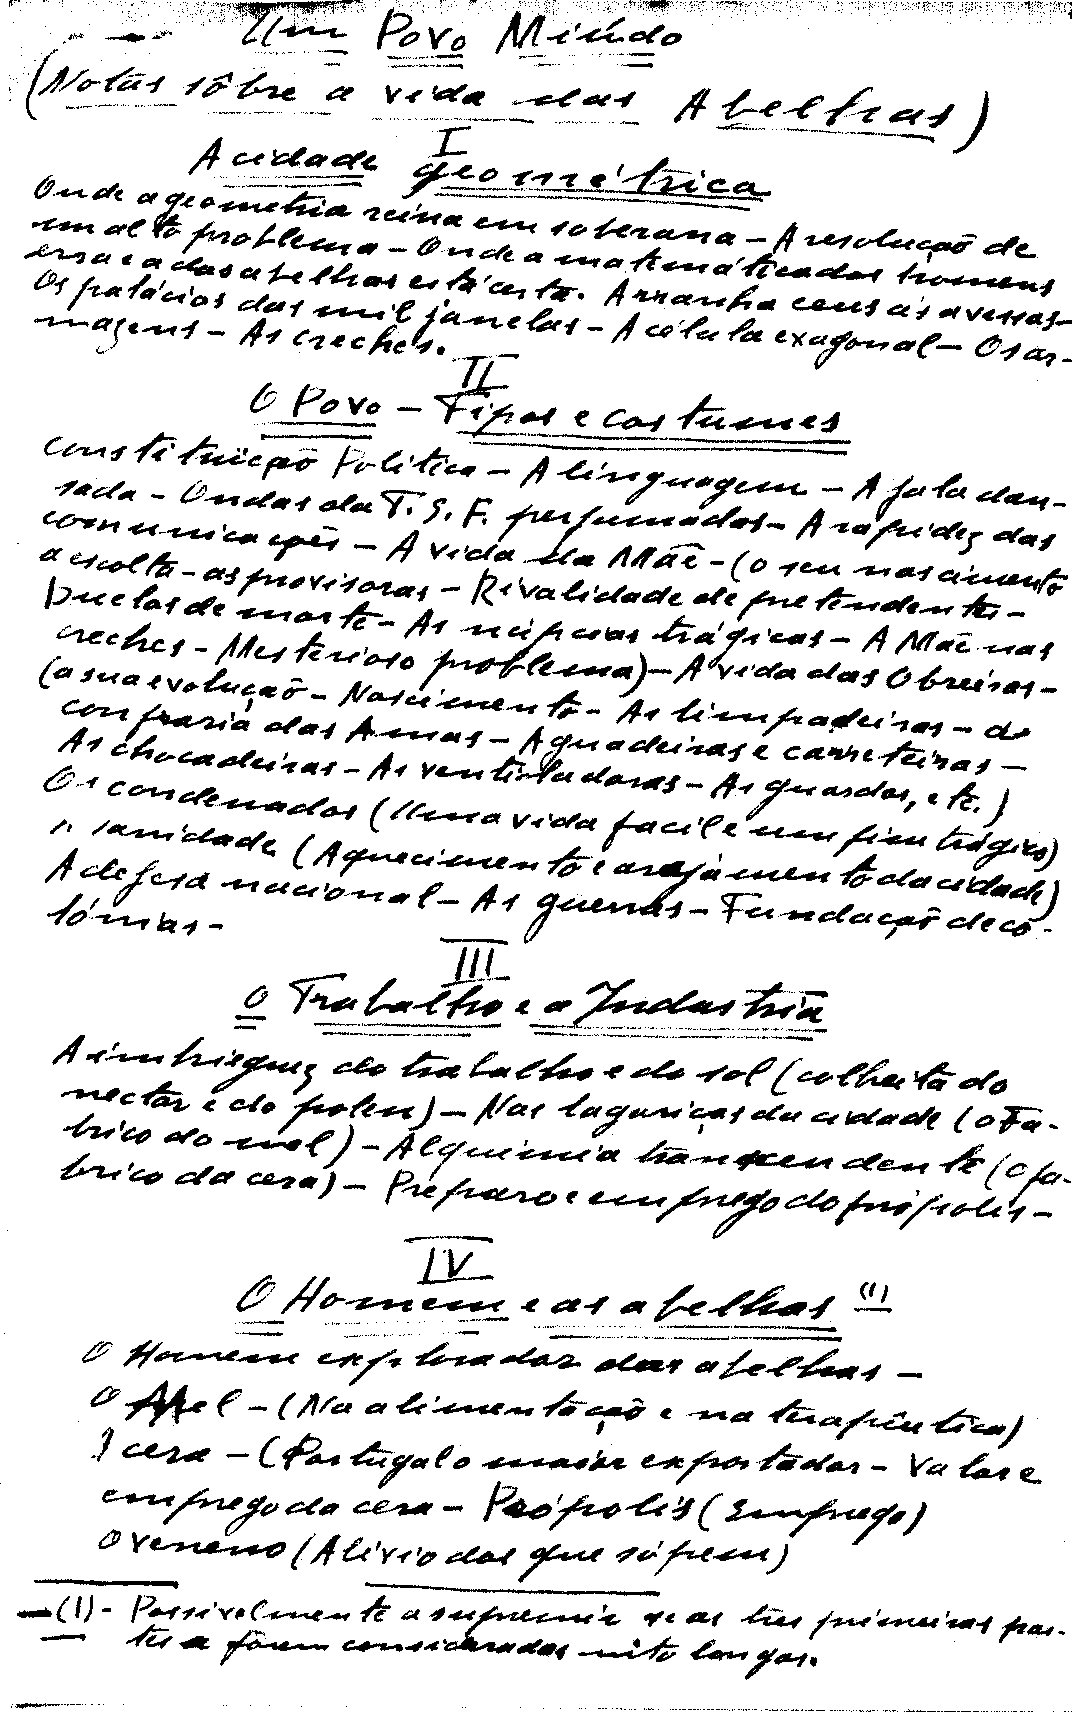 Um Povo Miúdo
(Notas sôbre a vida das Abelhas)
I
A cidade geométrica
Onde a geometria reina em soberana – A resolução de
um alto problema – Onde a matemática dos homens
erra e a das abelhas está certa. Arranha ceus ás avessas –
Os palácios das mil janelas – A célula exagonal – Os ar-
mazens – As creches.
II
O Povo – Tipos e costumes
Constituição Politica – A linguagem – A fala dan-
sada – Ondas da T. S. F. perfumadas – A rapidez das
comunicações – A vida da Mãe – (o seu nascimento
a escolta – as provisoras – Rivalidade de pretendentes –
Duelos de morte – As núpcias trágicas – A Mãe nas
creches – Misterioso problema) – A vida das Obreiras –
(a sua evolução – Nascimento – As limpadeiras – da
confraria das Amas – Aguadeiras e carreteiras –
As chocadeiras – As ventiladoras – As guardas, etc.)
Os condenados (Uma vida facil e um fim trágico)
A sanidade (Aquecimento e arejamento da cidade)
A defesa nacional – As guerras – Fundação de co-
lónias –
III
O Trabalho e a Industria
A embriaguez do trabalho e do sol (colheita do
nectar e do polen) – Nas lagariças da cidade (o fa-
brico do mel) – Alquimia transcendente (o fa-
brico da cera) – Preparo e emprego do própolis –
IV
O Homem e as abelhas (1)
O Homem explorador das abelhas –
O Mel – (Na alimentação e na terapêutica)
A cera – (Portugal o maior exportador – Valor e
emprego da cera – Própolis (Emprego)
O veneno (Alivio dos que sófrem)
– (1) – Possivelmente a suprimir se as três primeiras par-
tes fôrem consideradas mto longas.